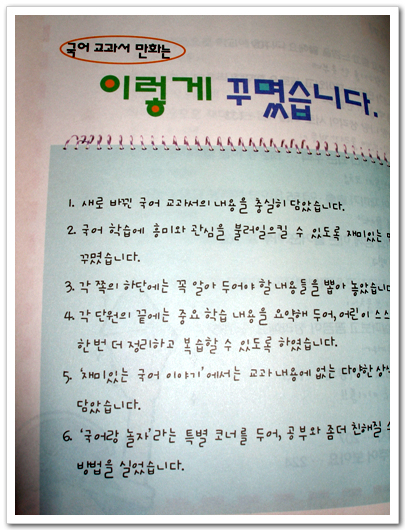 국어 교과서 만화는
이렇게 꾸몄습니다.
1. 새로 바뀐 국어 교과서의 내용을 충실히 담았습니다.
2. 국어 학습에 흥미와 관심을 불러일으킬 수 있도록 재미있는
꾸몄습니다.
3. 각 쪽의 하단에는 꼭 알아 두어야 할 내용들을 뽑아 놓았습니다
4. 각 단원의 끝에는 중요 학습 내용을 요약해 두어, 어린이 스스
한 번 더 정리하고 복습할 수 있도록 하였습니다.
5. '재미있는 국어 이야기'에서는 교과 내용에 없는 다양한 상식
담았습니다.
6. '국어랑 놀자'라는 특별 코너를 두어, 공부와 좀더 친해질 수
방법을 실었습니다.